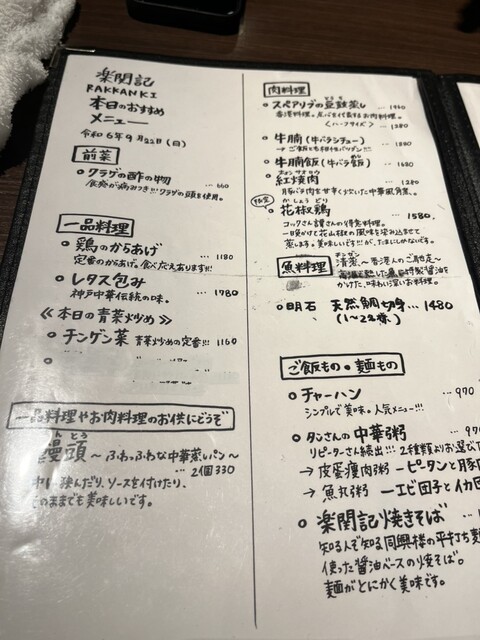 楽関記
RAKKANKI
本日のおすすめ
メニュー
令和6年9月22日(日)
前菜
クラゲの酢の物 … 660
食感が病みつき!!! クラゲの頭を使用。
一品料理
鶏のからあげ … 1180
定番のからあげ。食べ応えあります!!!
レタス包み … 1780
神戸中華伝統の味。
≪本日の青菜炒め≫
チンゲン菜 青菜炒めの定番!!! 1160
一品料理やお肉料理のお供にどうぞ
饅頭 ～ふわっふわな中華蒸しパン～
… 2個330
挟んだり、ソースを付けたり、
そのままでも美味しいです。
肉料理
スペアリブの豆豉蒸し … 1980
香港料理。
〈ハーフサイズ〉 … 1280
牛腩(牛バラシチュー) … 1880
→ご飯とも相性バツグン!!!
牛腩飯(牛バラ飯) … 1680
紅焼肉 … 1280
豚バラ肉を甘辛く炊いた中華風角煮。
花椒鶏 … 1580
コックさん譚さんの得意料理。
一日かけて花山椒の風味を染み込ませて
蒸します。美味しいです!!!が、たまにしかないです。
魚料理
清蒸～香港人のご馳走～
かけた、味わい深いお料理。
明石 天然鯛切身… 1480
(1～2名様)
ご飯もの・麺もの
チャーハン … 970
シンプルで美味。人気メニュー!!!
タンさんの中華粥 … 970
リピーターさん続出!!! 2種類よりお選び
→皮蛋痩肉粥 ーピータンと豚
→魚丸粥 ーエビ団子とイカ団
楽関記焼きそば …
知る人ぞ知る同興樓の平打ち麺
使った醤油ベースの焼そば。
麺がとにかく美味です。